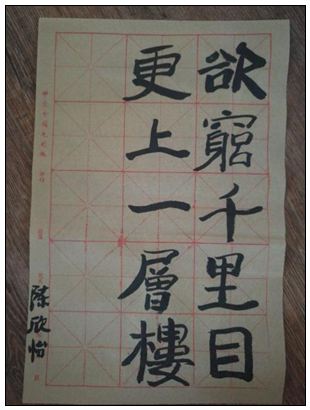 欲窮千里目
更上一層樓
陈欣怡